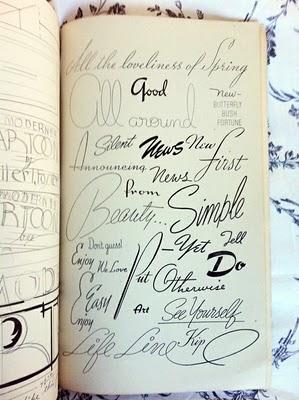 All the loveliness of Spring
Good
All around
New-
BUTTERFLY
BUSH
FORTUNE
Silent News New
Announcing News First
From
Beauty... Simple
Don't guess! -Yet Tell
Enjoy We Love Put Do
Otherwise
Easy
Enjoy Art See Yourself
Life Line Kip
MODERN
CARTOON
by
MODERN
CARTOON